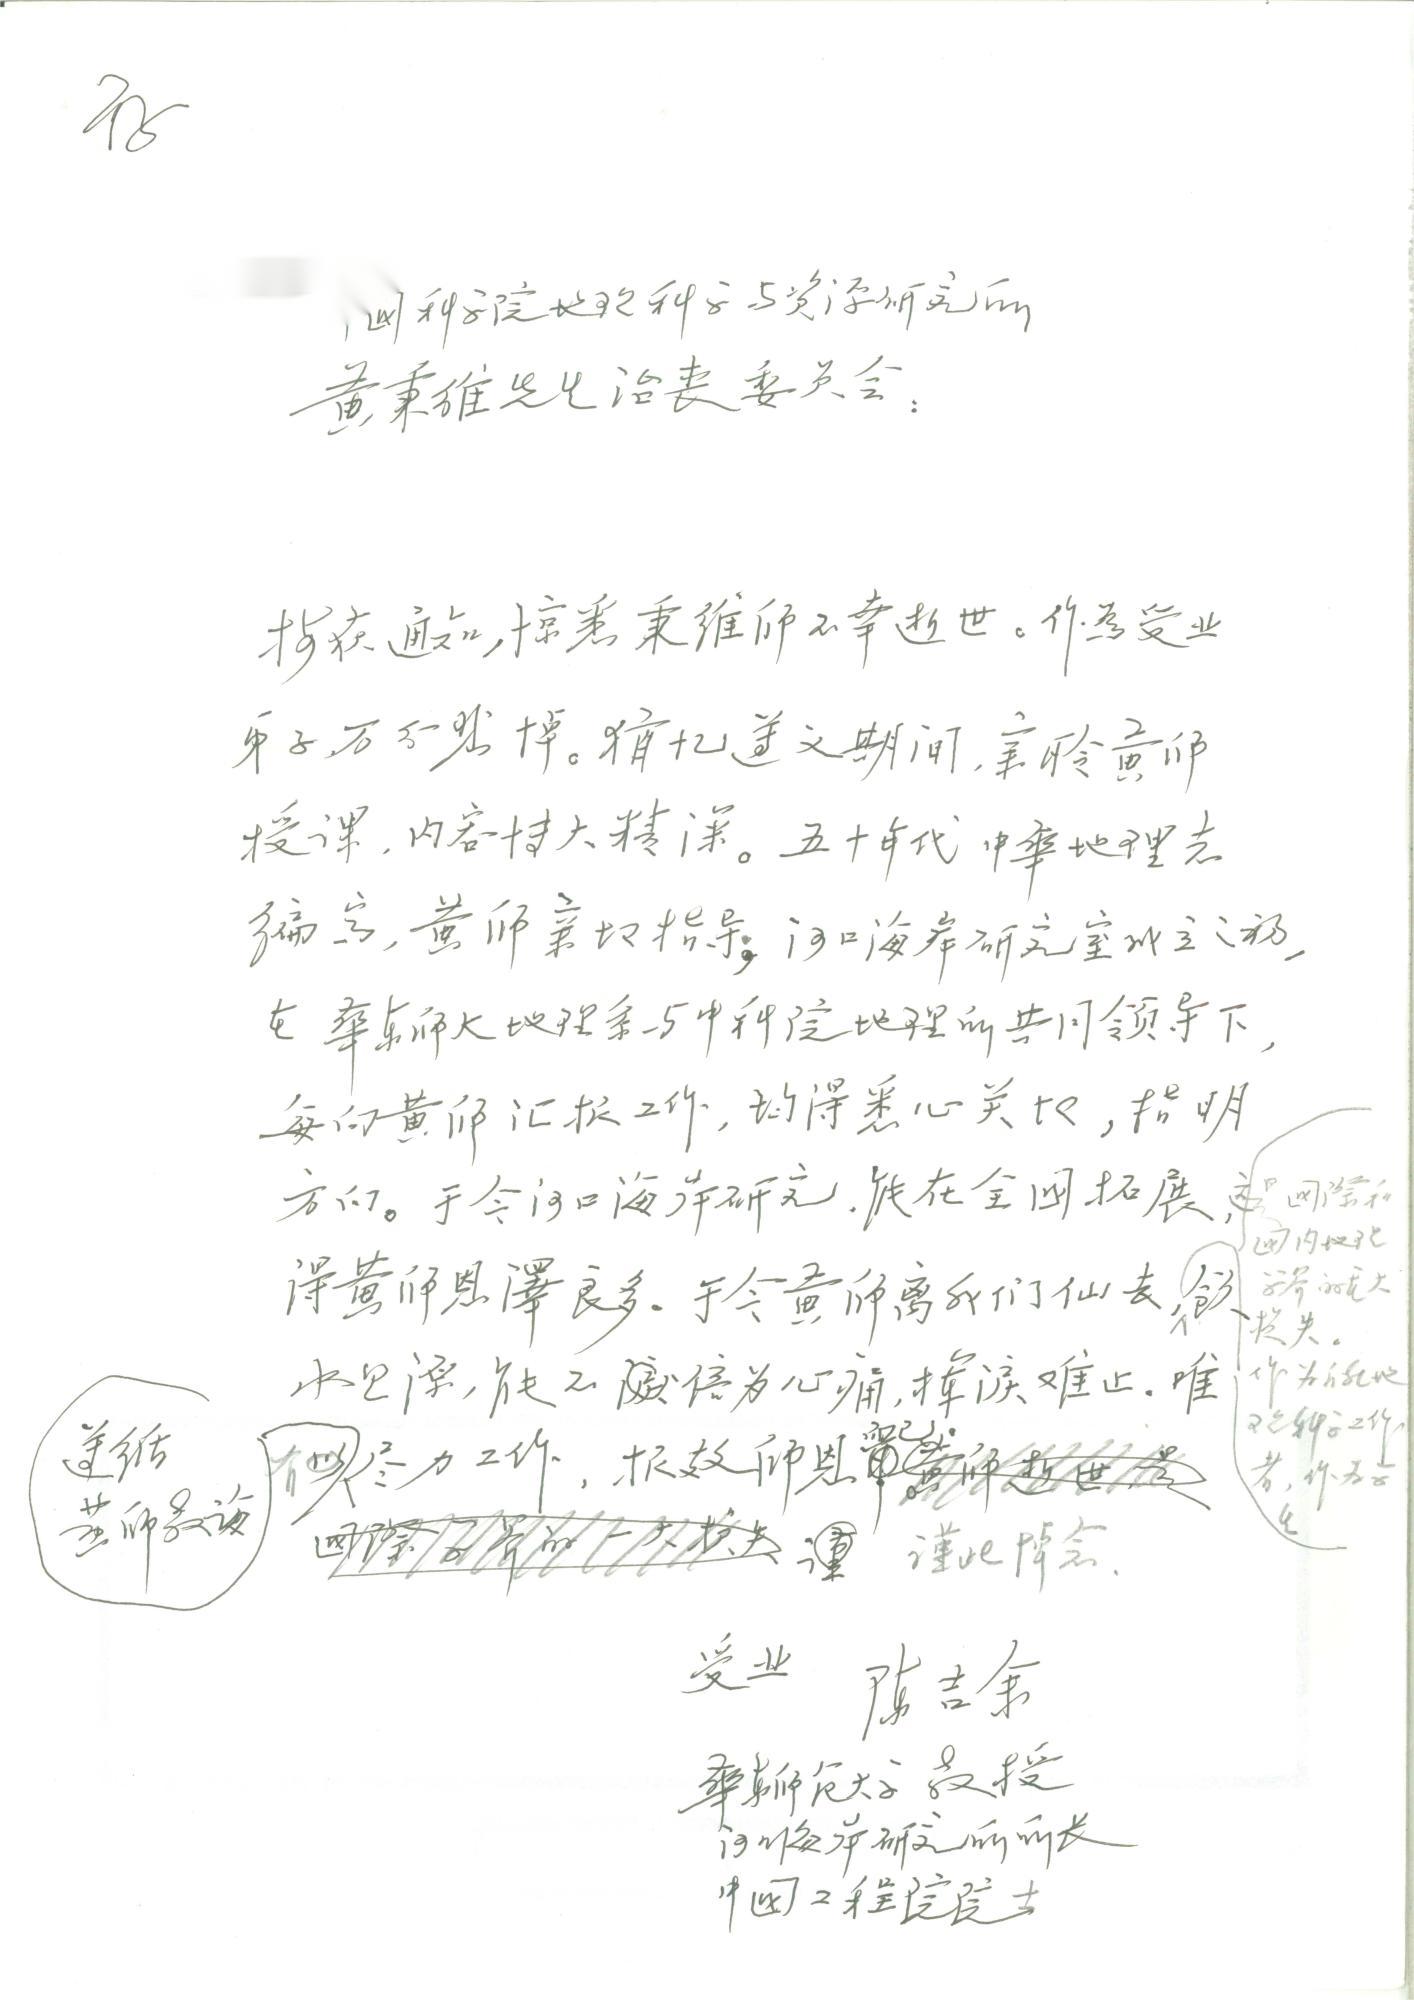 存
国科学院地理科学与资源研究所
黄秉维先生治丧委员会：
接获通知，惊悉秉维师不幸逝世。作为受业
弟子，万分悲悼。犹忆遵义期间，亲聆黄师
授课，内容博大精深。五十年代中华地理志
编写，黄师亲切指导；河口海岸研究室成立之初，
在华东师大地理系与中科院地理所共同领导下，
每向黄师汇报工作，均得悉心关切，指明
方向。于今河口海岸研究，能在全国拓展，
得黄师恩泽良多。于今黄师离我们仙去，饮
水思源，能不感倍为心痛，挥泪难止。唯
有以尽力工作，报效师恩 黄师逝世是
国際学界的一大损失 谨 谨此悼念.
遵循
黄师教诲
是国際和
国内地理
学界的重大
损失。
作为地
理科学工作
者，作为学
生
受业 陈吉余
华东师范大学教授
河口海岸研究所所长
中国工程院院士